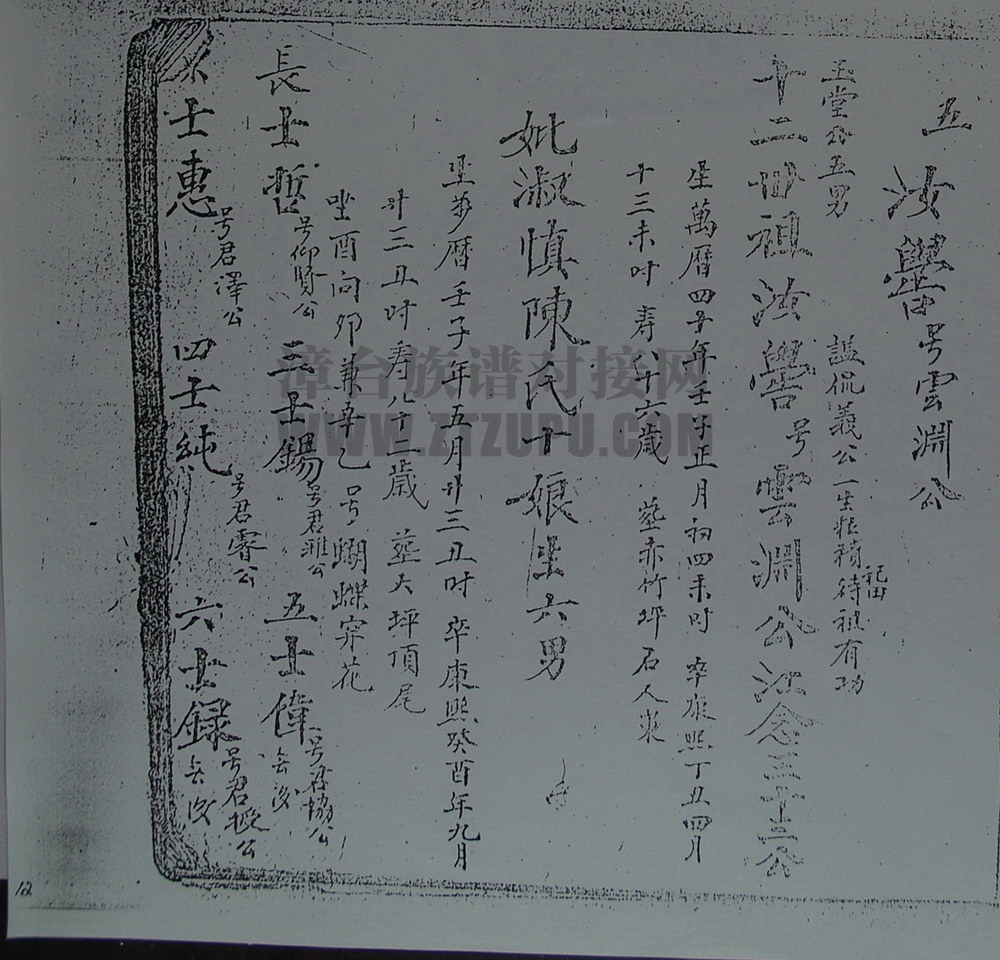 五 汝譽 号雲淵公
玉堂公五男 諡侃義公一生粧積待祖有功
祀田
十二世祖汝譽号雲淵公法念三十三公
生萬曆四十年壬子正月初四未时 卒康熙丁丑四月
十三未时 寿八十六歲 塟赤竹坪石人崠
妣淑慎陳氏十娘生六男
生萬曆壬子年五月廿三丑时 卒康熙癸酉年九月
廿三丑时寿八十二歲 塟大坪頂尾
坐酉向卯兼辛乙 号蝴蝶穿花
長士哲号仰賢公 三士錫号君雅公 五士偉号君協公
士惠号君澤公 四士純号君睿公 六士録号君公
漳台族谱对接网
WWW.ZTZUPU.COM
12